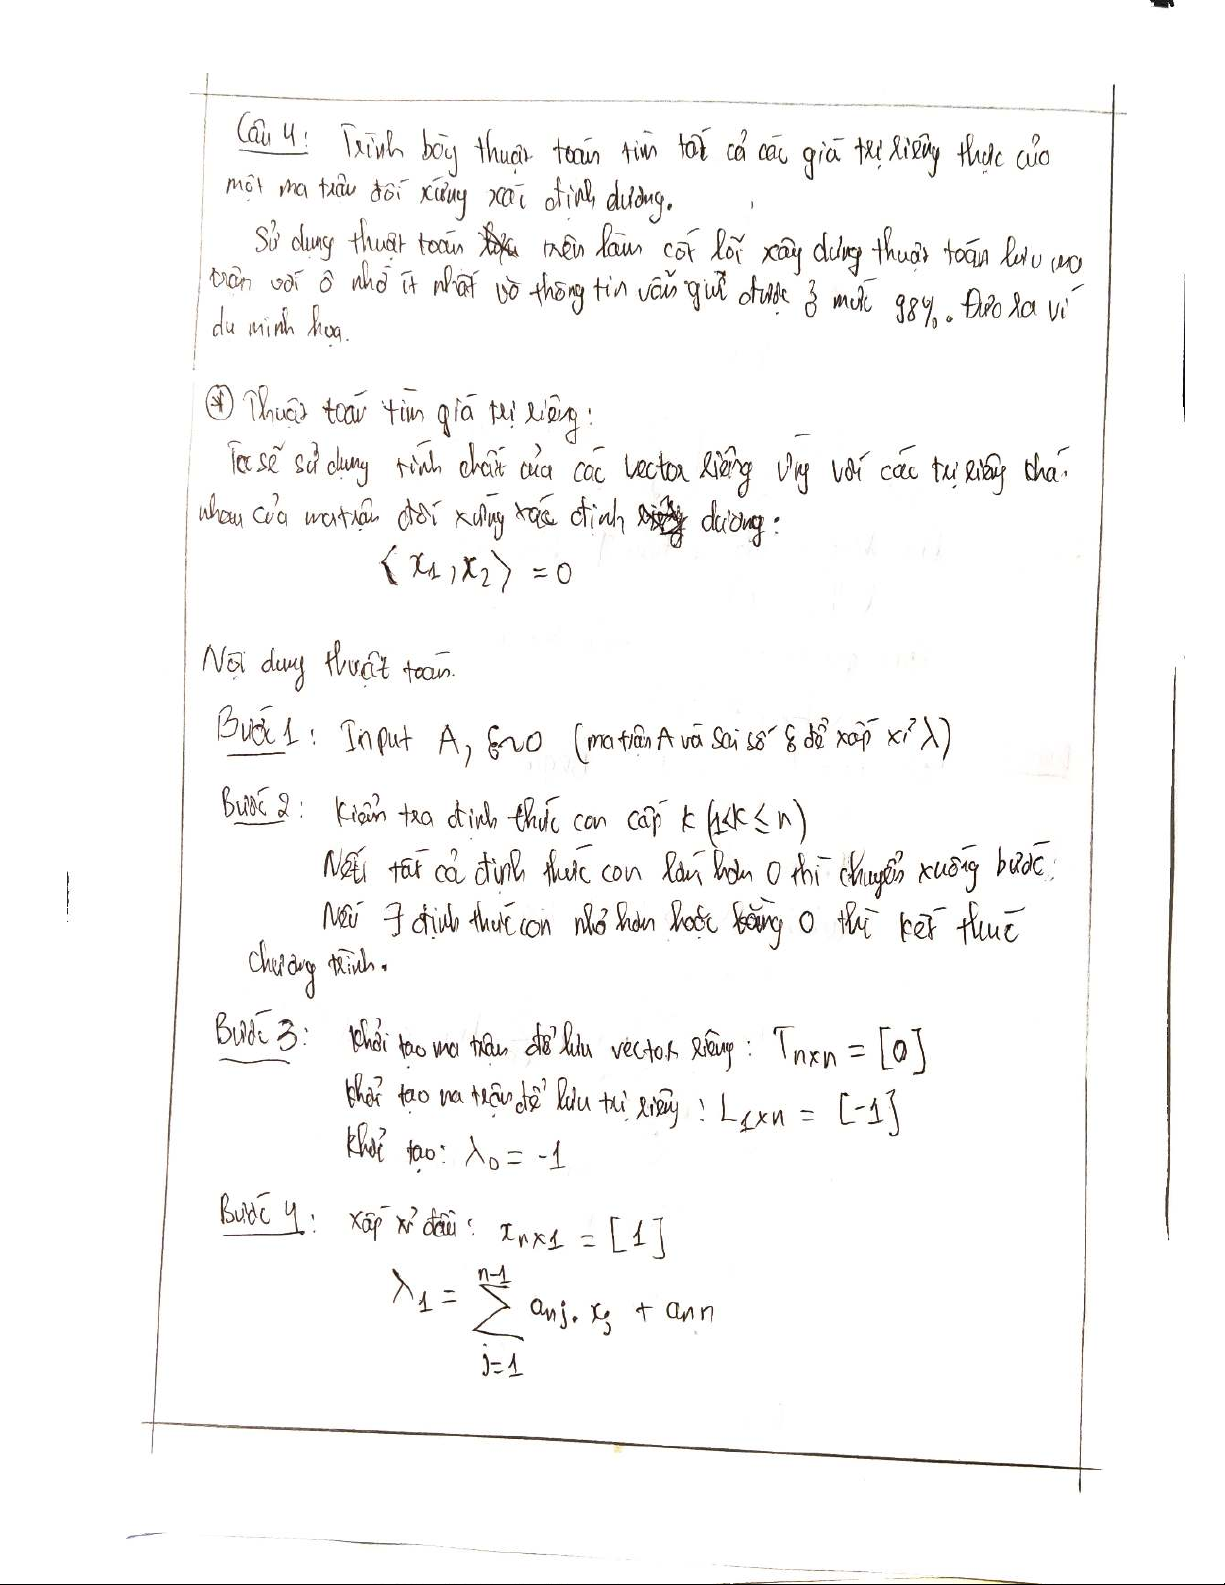 Câu 4: Trình bày thuật toán tìm tất cả các giá trị riêng thực của
một ma trận đối xứng xác định dương.
Sử dụng thuật toán trên làm cốt lõi xây dựng thuật toán lưu ma
trận với ô nhớ ít nhất và thông tin vẫn giữ được ở mức 98%. Đưa ra ví
dụ minh họa.
* Thuật toán tìm giá trị riêng:
Ta sẽ sử dụng tính chất của các vector riêng ứng với các trị riêng khác
nhau của ma trận đối xứng xác định dương:
⟨x₁, x₂⟩ = 0
Nội dung thuật toán.
Bước 1: Input A, ε~0 (ma trận A và sai số ε để xấp xỉ λ)
Bước 2: Kiểm tra định thức con cấp k (1<k≤n)
Nếu tất cả định thức con lớn hơn 0 thì chuyển xuống bước
Nếu ∃ định thức con nhỏ hơn hoặc bằng 0 thì kết thúc
chương trình.
Bước 3: Khởi tạo ma trận để lưu vector riêng: Tₙₓₙ = [0]
Khởi tạo ma trận để lưu trị riêng: L₁ₓₙ = [-1]
Khởi tạo: λ₀ = -1
Bước 4: xấp xỉ đầu: xₙₓ₁ = [1]
λ₁ = ∑_{j=1}^{n-1} aₙⱼ. xⱼ + aₙₙ